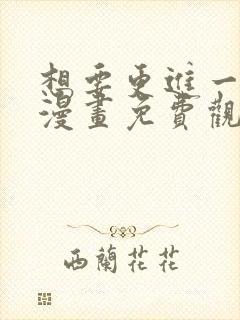 想要更進一
漫畫免費觀
西蘭花花